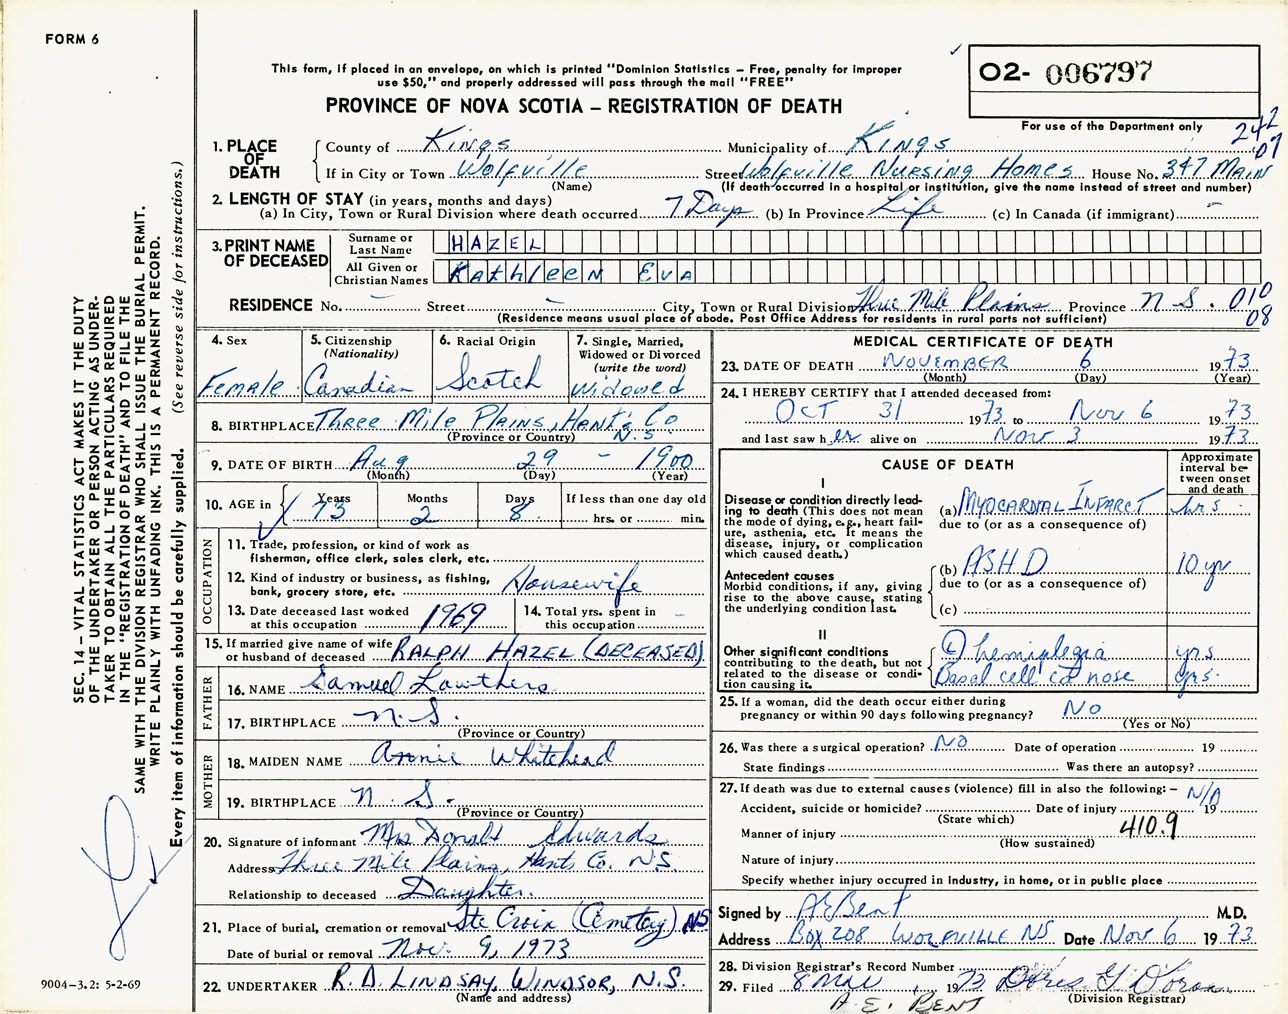 FORM 6
This form, if placed in an envelope, on which is printed "Dominion Statistics – Free, penalty for improper
use $50," and properly addressed will pass through the mail "FREE"
PROVINCE OF NOVA SCOTIA – REGISTRATION OF DEATH
02- 006797
For use of the Department only
242
07
1. PLACE OF DEATH
County of Kings Municipality of Kings
If in City or Town Wolfville Street Wolfville Nursing Homes House No. 347 Main
(Name) (If death occurred in a hospital or institution, give the name instead of street and number)
2. LENGTH OF STAY (in years, months and days)
(a) In City, Town or Rural Division where death occurred 7 Days (b) In Province Life (c) In Canada (if immigrant) -
3. PRINT NAME OF DECEASED
Surname or Last Name HAZEL
All Given or Christian Names Kathleen Eva
RESIDENCE No. – Street – City, Town or Rural Division Three Mile Plains Province N S. 010
08
(Residence means usual place of abode. Post Office Address for residents in rural parts not sufficient)
4. Sex
Female
5. Citizenship
(Nationality)
Canadian
6. Racial Origin
Scotch
7. Single, Married,
Widowed or Divorced
(write the word)
Widowed
8. BIRTHPLACE Three Mile Plains, Hants Co
(Province or Country) N.S.
9. DATE OF BIRTH Aug 29 – 1900
(Month) (Day) (Year)
10. AGE in Years Months Days If less than one day old
73 2 8 hrs. or min.
OCCUPATION
11. Trade, profession, or kind of work as
fisherman, office clerk, sales clerk, etc.
12. Kind of industry or business, as fishing,
bank, grocery store, etc. Housewife
13. Date deceased last worked
at this occupation 1969
14. Total yrs. spent in
this occupation –
15. If married give name of wife
or husband of deceased RALPH HAZEL (DECEASED)
FATHER
16. NAME Samuel Lawthers
17. BIRTHPLACE N. S.
(Province or Country)
MOTHER
18. MAIDEN NAME Annie Whitehead
19. BIRTHPLACE N. S.
(Province or Country)
20. Signature of informant Mrs Donald Edwards
Address Three Mile Plains, Hants Co. N.S.
Relationship to deceased Daughter.
21. Place of burial, cremation or removal Ste Croix (Cemetery) NS
Date of burial or removal Nov. 9, 1973
22. UNDERTAKER R.D. LINDSAY, WINDSOR, N.S.
(Name and address)
MEDICAL CERTIFICATE OF DEATH
23. DATE OF DEATH NOVEMBER 6 1973
(Month) (Day) (Year)
24. I HEREBY CERTIFY that I attended deceased from:
OCT 31 1973 to Nov 6 1973
and last saw her alive on Nov 3 1973
CAUSE OF DEATH
Approximate interval between onset and death
I
Disease or condition directly leading to death (This does not mean the mode of dying, e.g., heart failure, asthenia, etc. It means the disease, injury, or complication which caused death.)
(a) MYOCARDIAL INFARCT hrs
due to (or as a consequence of)
Antecedent causes
Morbid conditions, if any, giving rise to the above cause, stating the underlying condition last.
(b) ASHD 10 yr
due to (or as a consequence of)
(c)
II
Other significant conditions
contributing to the death, but not related to the disease or condition causing it.
hemiplegia yrs
Basal cell ca nose yrs.
25. If a woman, did the death occur either during
pregnancy or within 90 days following pregnancy? No
(Yes or No)
26. Was there a surgical operation? No Date of operation 19
State findings Was there an autopsy?
27. If death was due to external causes (violence) fill in also the following: – N/A
Accident, suicide or homicide? Date of injury 19
(State which)
Manner of injury 410.9
(How sustained)
Nature of injury
Specify whether injury occurred in industry, in home, or in public place
Signed by A E Bent M.D.
Address Box 208 WOLFVILLE NS Date Nov 6 1973
28. Division Registrar's Record Number
29. Filed 8 1973 Doris
(Division Registrar)
A. E. BENT
SEC. 14 – VITAL STATISTICS ACT MAKES IT THE DUTY
OF THE UNDERTAKER OR PERSON ACTING AS UNDER-
TAKER TO OBTAIN ALL THE PARTICULARS REQUIRED
IN THE "REGISTRATION OF DEATH" AND TO FILE THE
SAME WITH THE DIVISION REGISTRAR WHO SHALL ISSUE THE BURIAL PERMIT.
WRITE PLAINLY WITH UNFADING INK. THIS IS A PERMANENT RECORD.
Every item of information should be carefully supplied. (See reverse side for instructions.)
9004-3.2: 5-2-69